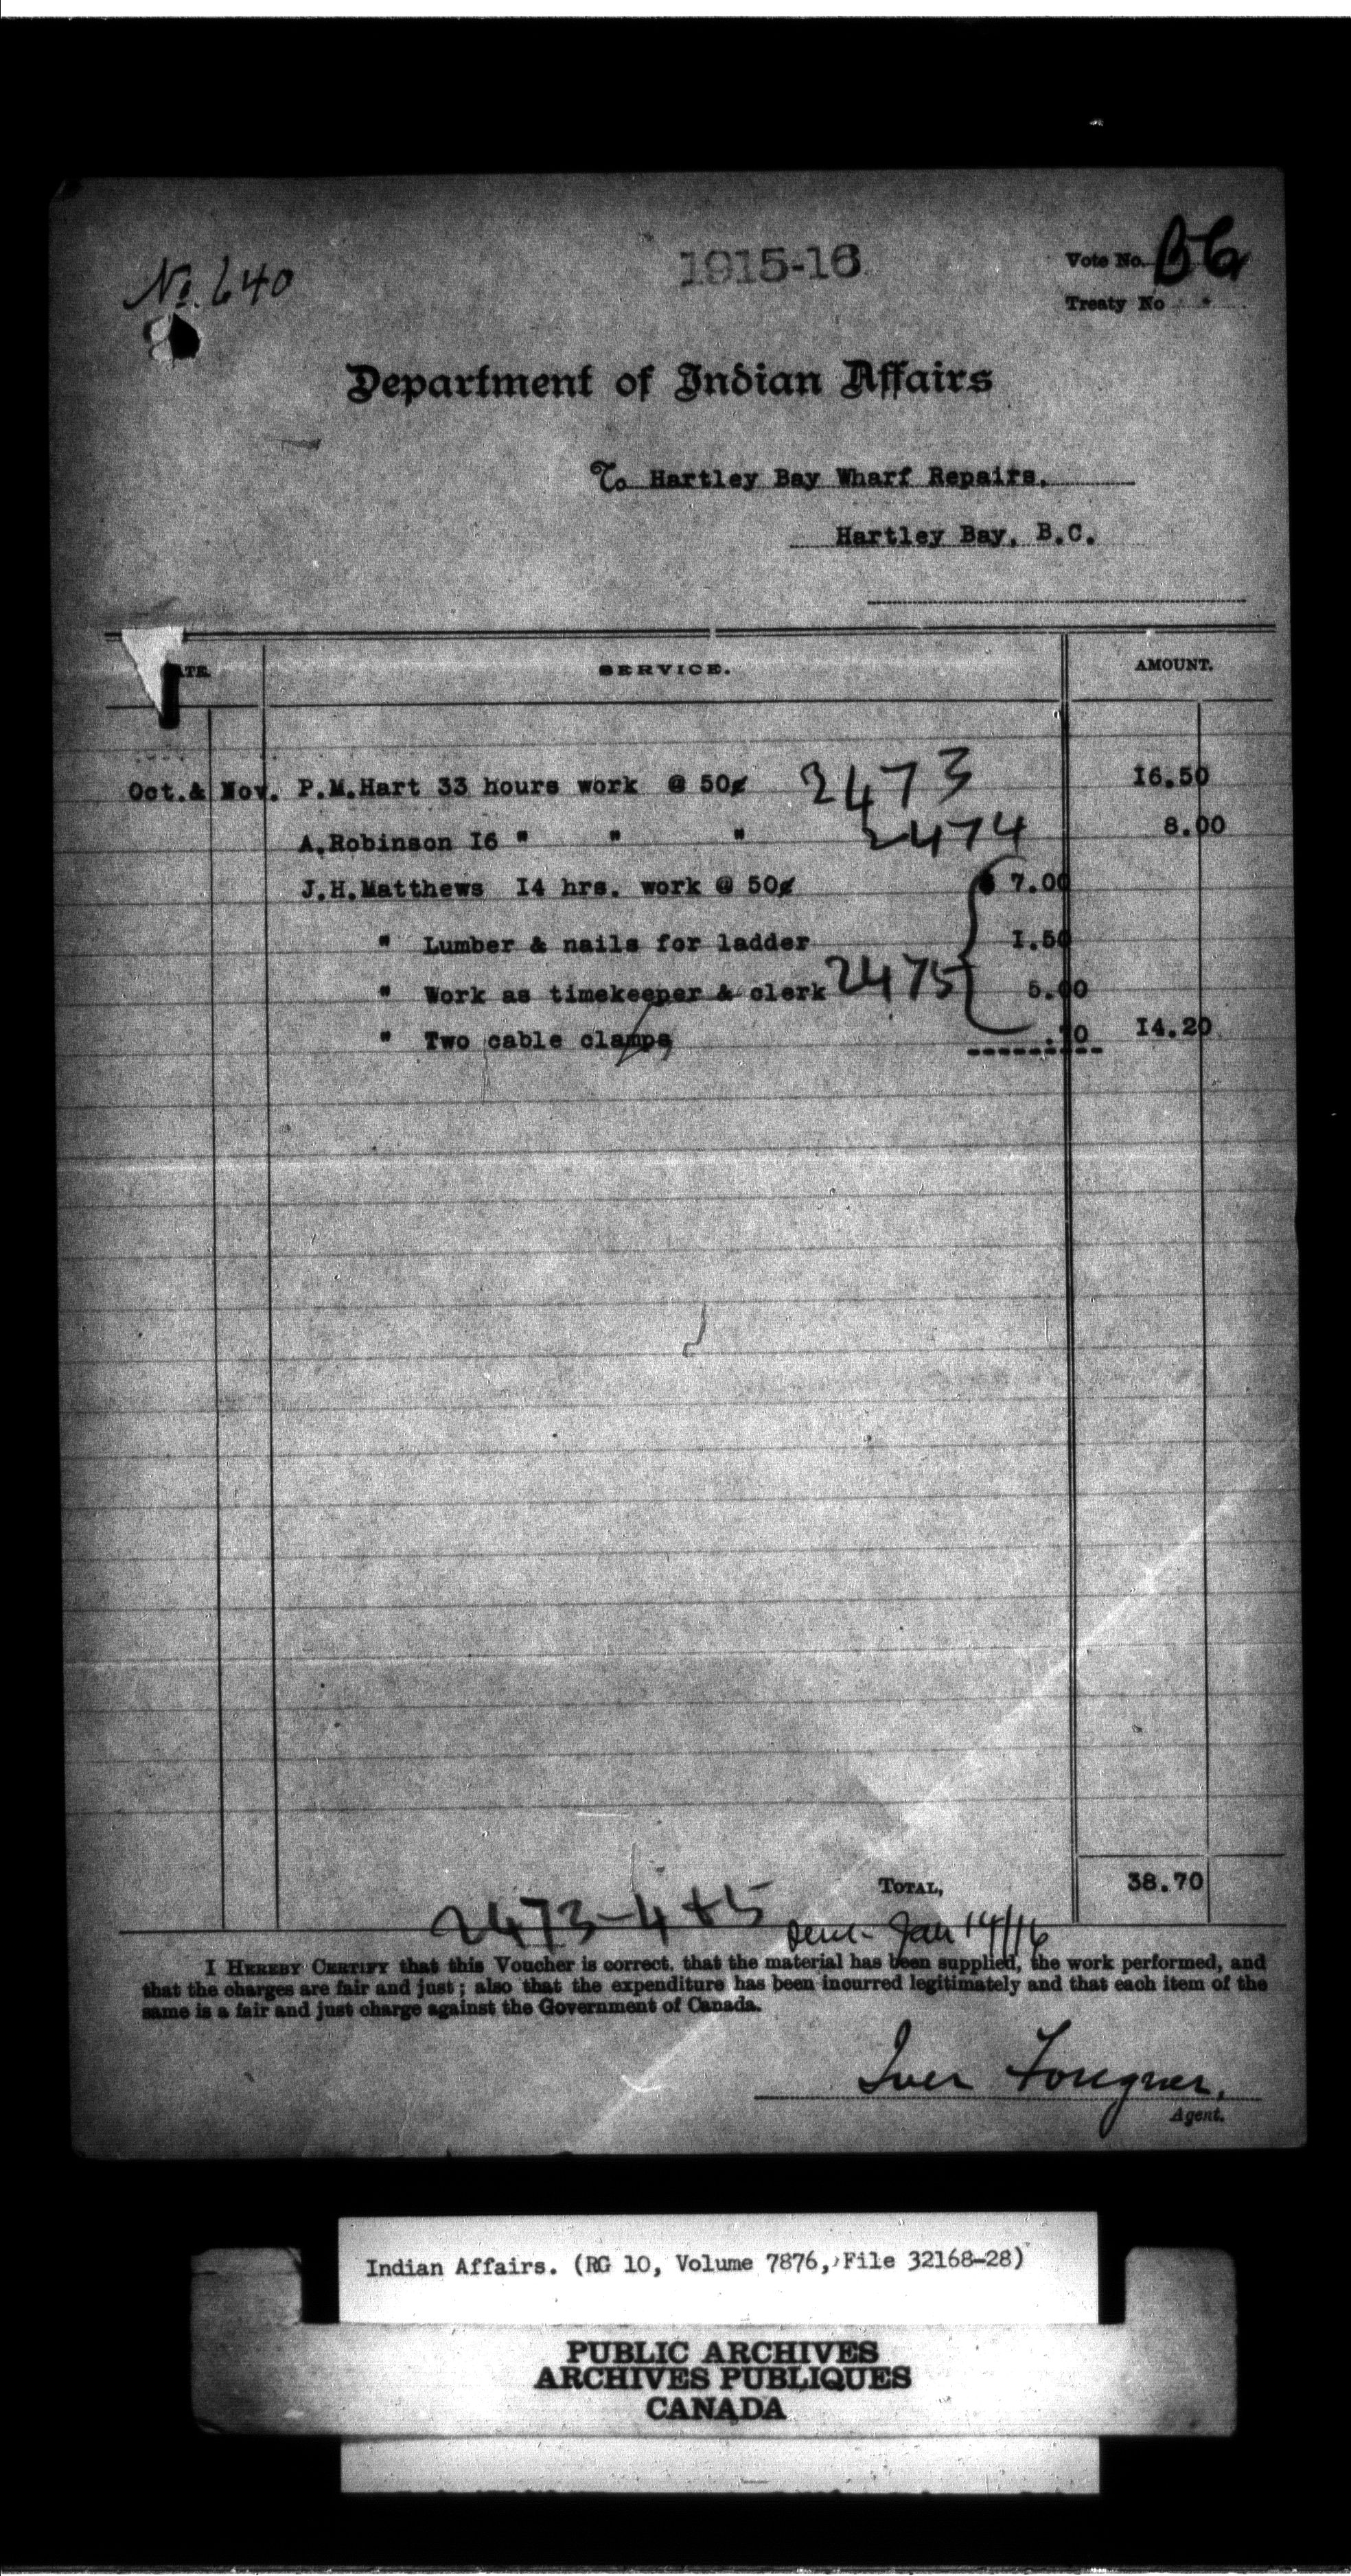 No. 640
1915-16
Vote No. BC
Treaty No
Department of Indian Affairs
To Hartley Bay Wharf Repairs,
Hartley Bay, B.C.
ATE.
SERVICE.
AMOUNT.
Oct.& Nov. P.M.Hart 33 hours work @ 50¢ 2473 16.50
A.Robinson 16 " " " 2474 8.00
J.H.Matthews 14 hrs. work @ 50¢ $ 7.00
" Lumber & nails for ladder 1.50
" Work as timekeeper & clerk 2475 5.00
" Two cable clamps .70 14.20
TOTAL, 38.70
2473-4+5 Jan 14/16
I HEREBY CERTIFY that this Voucher is correct, that the material has been supplied, the work performed, and
that the charges are fair and just; also that the expenditure has been incurred legitimately and that each item of the
same is a fair and just charge against the Government of Canada.
Iver Fougner,
Agent.
Indian Affairs. (RG 10, Volume 7876, File 32168-28)
PUBLIC ARCHIVES
ARCHIVES PUBLIQUES
CANADA